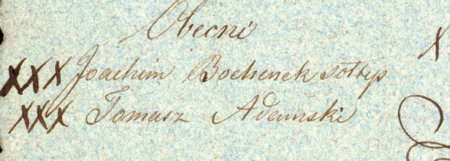 Obecni
X
XXX Joachim Bochenek sołtys
XXX Tomasz Adamski